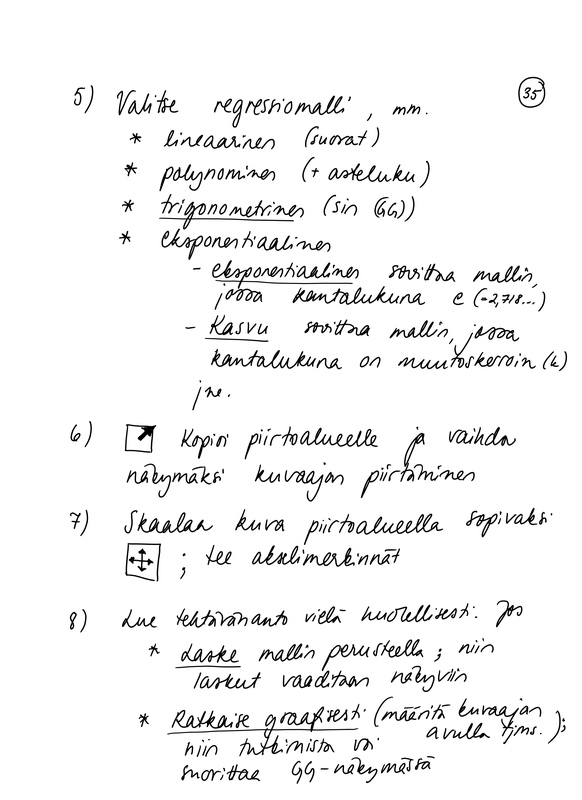 35
5) Valitse regressiomalli, mm.
* lineaarinen (suorat)
* polynominen (+ asteluku)
* trigonometrinen (sin (GG))
* eksponentiaalinen
- eksponentiaalinen sovittaa mallin,
jossa kantalukuna e (≈2,718...)
- Kasvu sovittaa mallin, jossa
kantalukuna on muutoskerroin (k)
jne.
6) Kopioi piirtoalueelle ja vaihda
näkymäksi kuvaajan piirtäminen
7) Skaalaa kuva piirtoalueella sopivaksi
; tee akselimerkinnät
8) Lue tehtävänanto vielä huolellisesti. Jos
* Laske mallin perusteella ; niin
laskut vaaditaan näkyviin
* Ratkaise graafisesti (määritä kuvaajan
avulla tjms.);
niin tutkimista voi
suorittaa GG-näkymässä